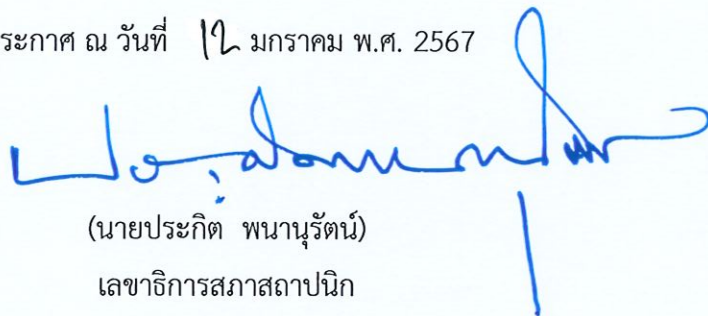 ระกาศ ณ วันที่ 12 มกราคม พ.ศ. 2567
(นายประกิต พนานุรัตน์)
เลขาธิการสภาสถาปนิก